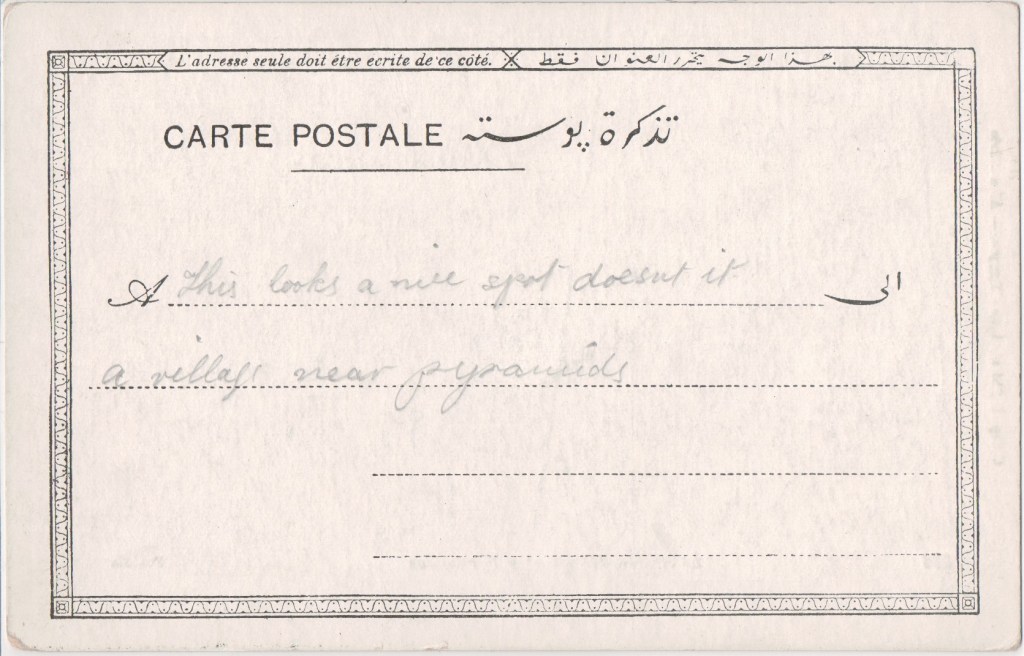 L'adresse seule doit être ecrite de ce coté. هذا الوجه يحرر العنوان فقط
CARTE POSTALE تذكرة پوسته
A This looks a nice spot doesnt it الى
a village near pyramids